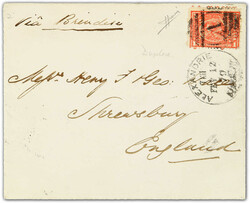 Via Brindisi
Messrs Henry F Geo:
Shrewsbury
England
ALEXANDRIE